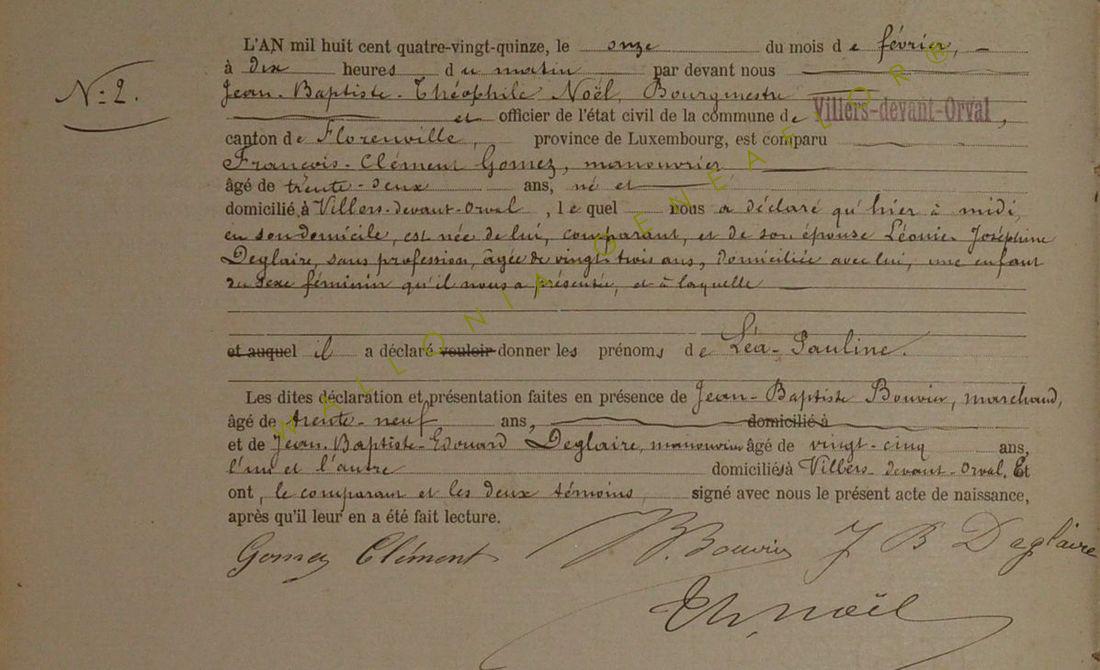 L'AN mil huit cent quatre-vingt-quinze, le onze du mois de février,
N° 2.
à dix heures du matin par devant nous
Jean-Baptiste-Théophile Noël, Bourgmestre
et officier de l'état civil de la commune de Villers-devant-Orval,
canton de Florenville, province de Luxembourg, est comparu
François-Clément Gomez, manouvrier
âgé de trente-deux ans, né et
domicilié à Villers-devant-Orval, lequel nous a déclaré qu'hier à midi,
en son domicile, est née de lui, comparant, et de son épouse Léonie Joséphine
Deglaire, sans profession, âgée de vingt-trois ans, domiciliée avec lui, une enfant
du sexe féminin qu'il nous a présentée, et à laquelle
et auquel il a déclaré vouloir donner les prénoms de Léa-Pauline.
Les dites déclaration et présentation faites en présence de Jean-Baptiste Bouvier, marchand,
âgé de trente-neuf ans, domicilié à
et de Jean-Baptiste-Edouard Deglaire, manouvrier âgé de vingt-cinq ans,
l'un et l'autre domiciliés à Villers-devant-Orval. Et
ont, le comparant et les deux témoins, signé avec nous le présent acte de naissance,
après qu'il leur en a été fait lecture.
Gomez Clément B. Bouvier J B Deglaire
Th. Noël